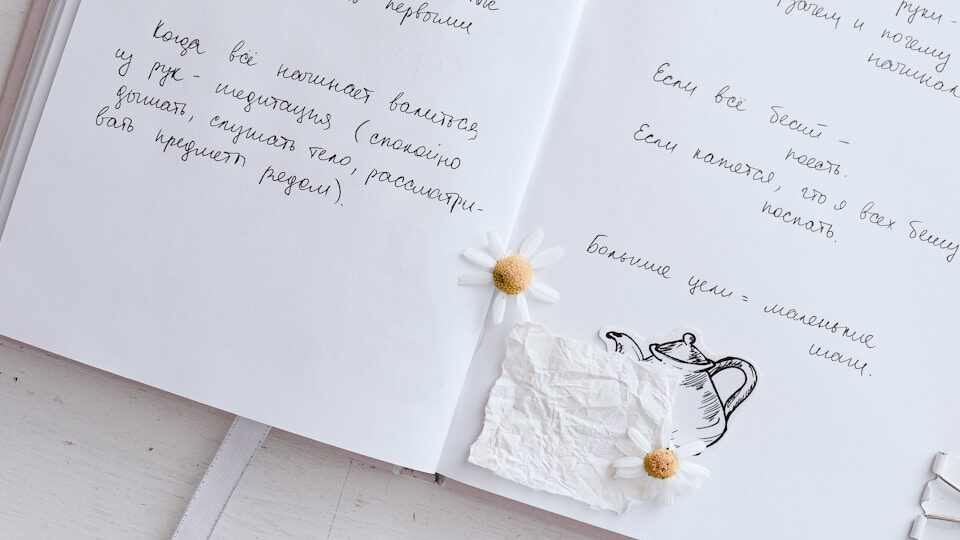 первыми
Когда всё начинает валиться
из рук - медитация (спокойно
дышать, слушать тело, рассматри-
вать предметы рядом).
руки -
и почему
начинал
Если всё бесит -
поесть.
Если кажется, что я всех бешу -
поспать.
Большие цели = маленькие
шаги.